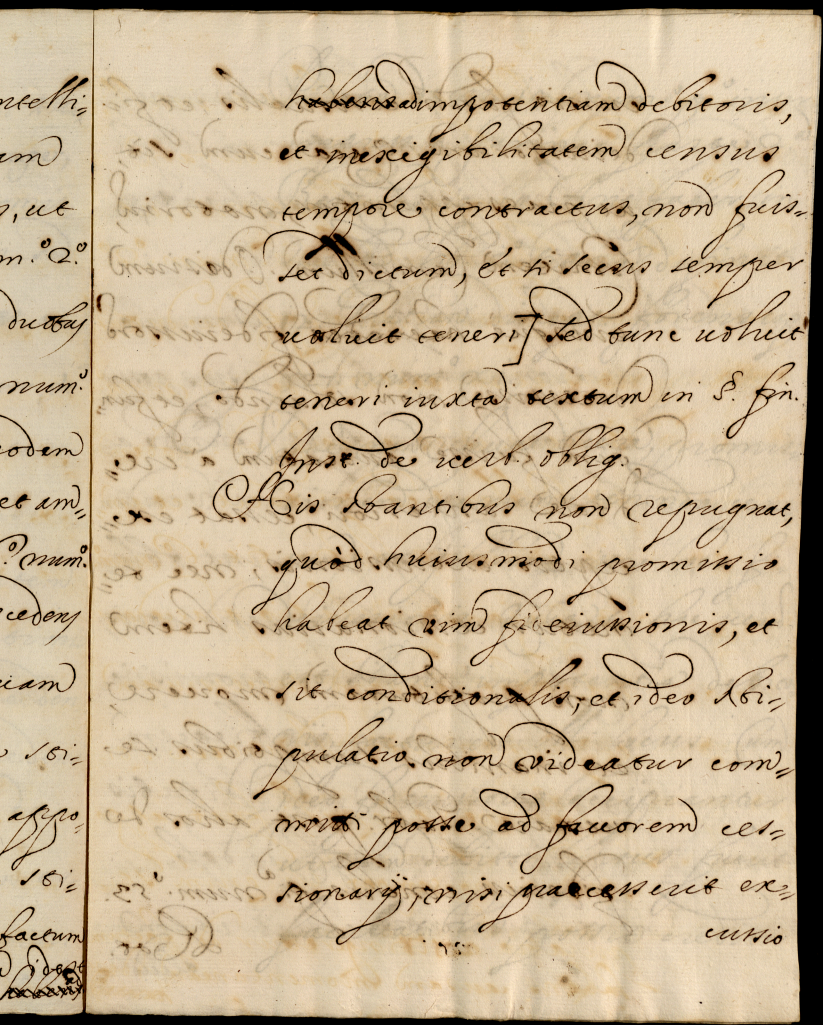 ntelli=
am
s, ut
m.º 2.º
ductus
num.º
eodem
et am=
º num.º
cedens
uam
sti-
appo-
sti-
factum
idest
habens ad impotentiam debitoris,
et inexigibilitatem census
tempore contractus, non fuis-
set dictum, et si secus semper
voluit teneri] sed tunc voluit
teneri iuxta textum in §. fin.
Inst. de verb. oblig.
His stantibus non repugnat,
quòd huiusmodi promissio
habeat vim fideiussionis, et
sit conditionalis, et ideo sti-
pulatio non videatur com=
mitti posse ad favorem ces-
sionarij, nisi praecesserit ex-
cussio